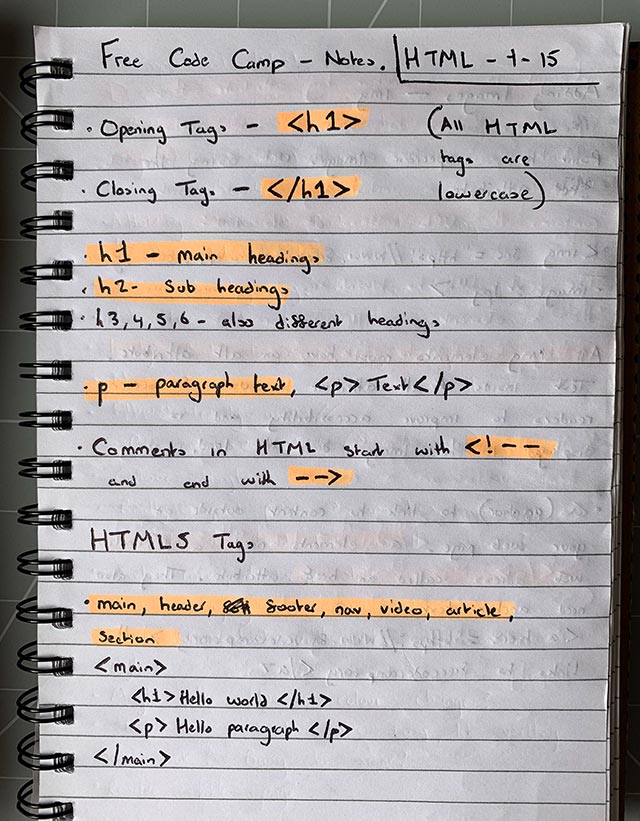 Free Code Camp - Notes. HTML - 1 - 15
· Opening Tags - <h1> (All HTML
tags are
· Closing Tags - </h1> lowercase)
· h1 - main headings
· h2- Sub headings
· h3,4,5,6 - also different headings
· p - paragraph text, <p> Text </p>
· Comments in HTML start with <!--
and end with -->
HTML5 Tags
· main, header, footer, nav, video, article,
section
<main>
<h1> Hello world </h1>
<p> Hello paragraph </p>
</main>